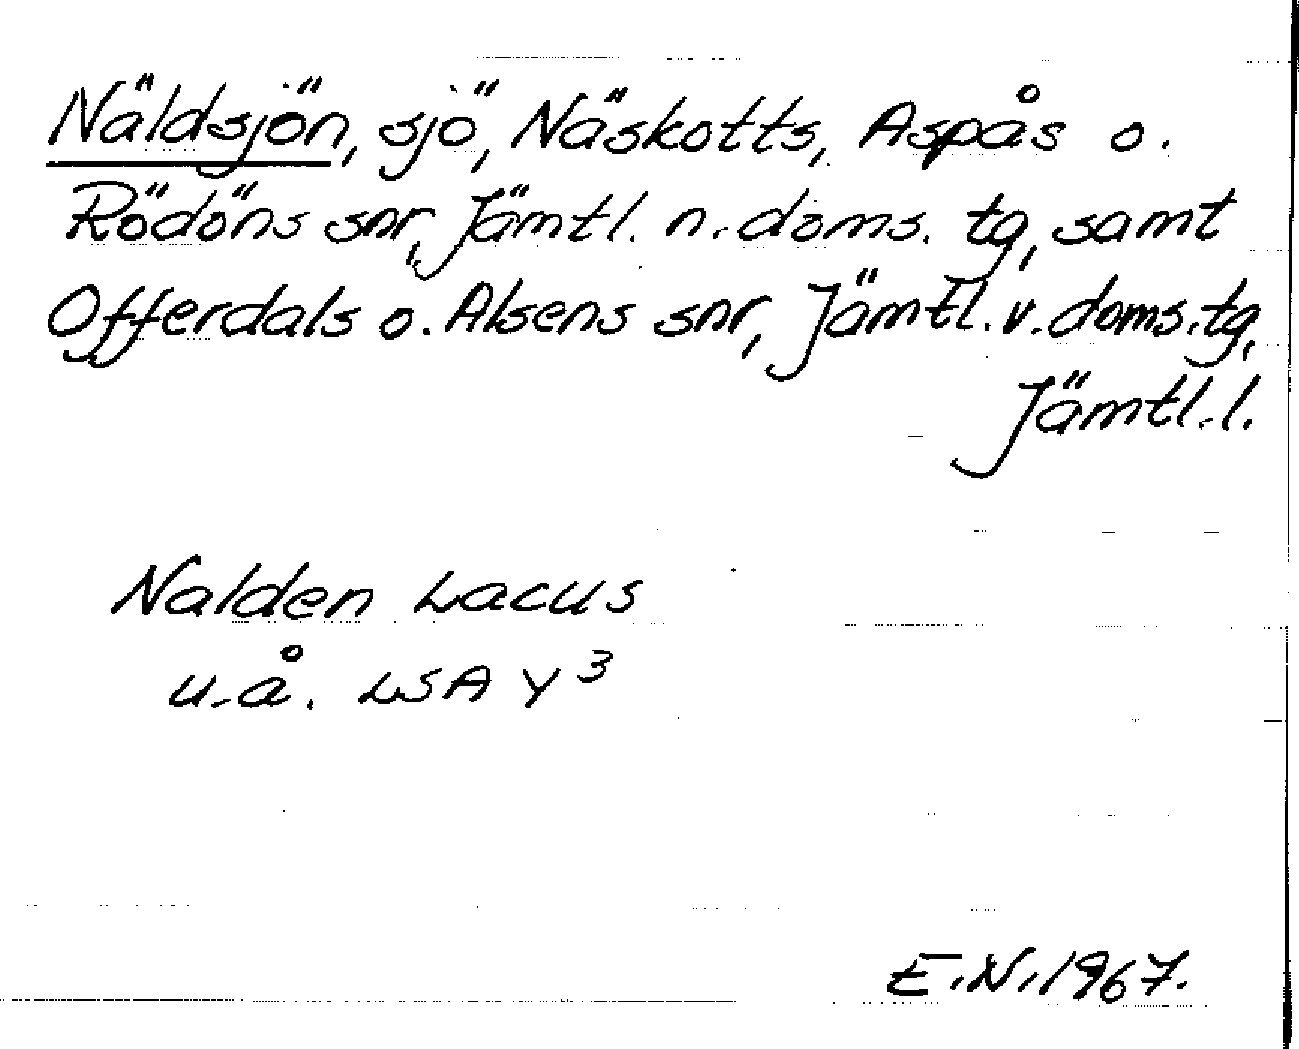 Näldsjön, sjö, Näskotts, Aspås o.
Rödöns snr, Jämtl. n. doms. tg, samt
Offerdals o. Alsens snr, Jämtl. v. doms. tg,
Jämtl. l.
Nalden Lacus
u. å. LSA Y³
E. N. 1967.